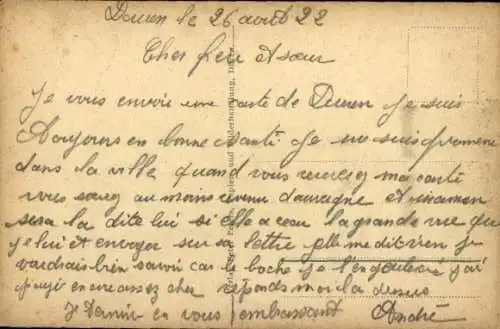 Duren le 26 août 22
Cher freu et sœur
Je vous envoie une carte de Duren je suis
toujours en bonne santé je me suis promene
dans la ville quand vous recevrez ma carte
vous serez au moins revenu dauvergne et
sera la dite lui si elle a eau la grande vue que
je lui et envoyer sur sa lettre elle me dit rien je
voudrais bien savoir car le boche je j'ai
payé encore assez cher réponds moi la dessus
Je Termine en vous embrassant André